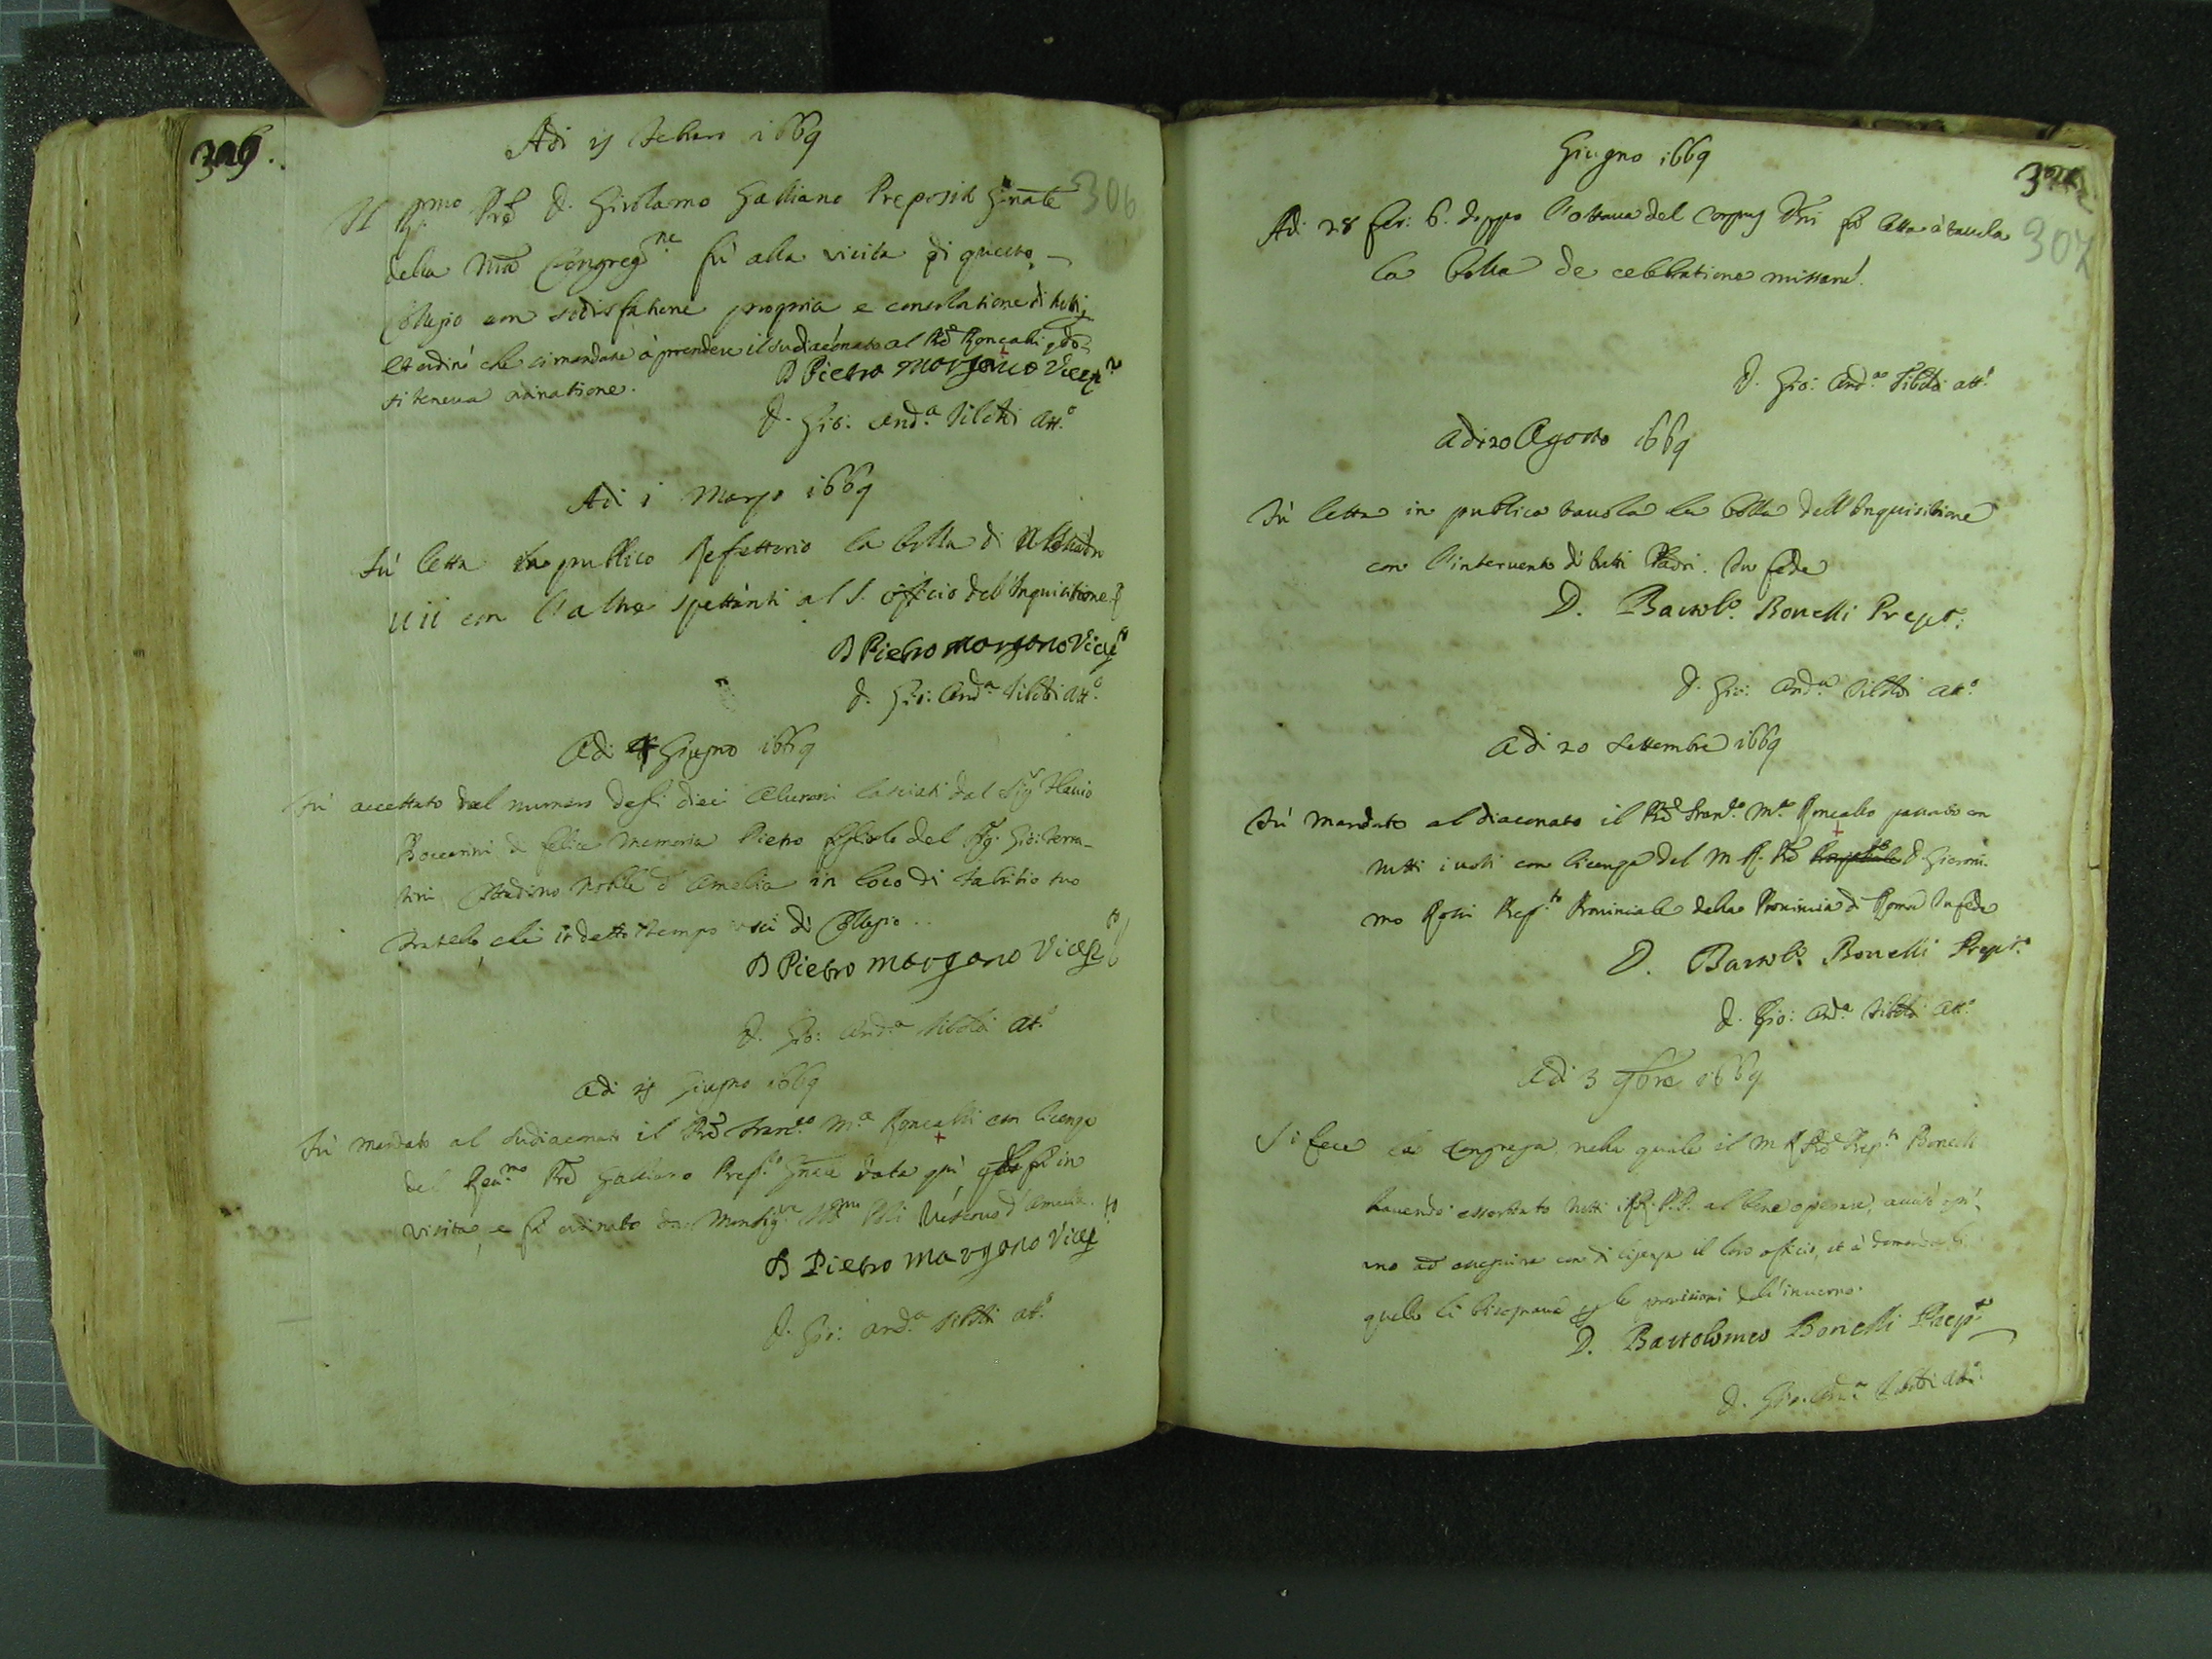 306.
306
Adi 15 Febraro 1669
Il R.mo Prê D. Girolamo Galliano Preposito Gñale
della Nrã Congreg.ne fù alla visita di questo
Collegio con sodisfatione propria e consolatione di tutti
et ordinò che si mandase à prendere il sudiaconato al Rdo Roncalli qdo
si teneva ordinatione.
D Pietro Morgano Vicep.to
D. Gio: And.a Tiboldi Att.o
Adi 1 Marzo 1669
Fù letta in publico Refettorio la bolla di Urbano
VIII con l'altre spettanti al S. officio del Inquisitione
D Pietro Morgano Vicep.to
D. Gio: And.a Tiboldi Att.o
Adi 4 Giugno 1669
Fù accettato del numero delli dieci Alunni lasciati dal Sig.r Flavio
Boccarini di felice memoria Pietro figliolo del Sig. Gio:
Cittadino Nobile d'Amelia in loco di Fabritio suo
Fratello, che in detto tempo uscì di Collegio..
D Pietro Morgano Vicep.to
D. Gio: And.a Tiboldi Att.o
Adi 15 Giugno 1669
Fù mandato al sudiaconato il Rdo Fran.co M.a Roncalli con licenza
del Reu.mo Prê Galliano Prep.to Gñale data qui, qdo fù in
visita, e fù ordinato da Monsig.re Vescovo d'Amelia.
D Pietro Morgano Vicep.to
D. Gio: And.a Tiboldi att.o
307
Giugno 1669
Adi 28 fer: 6. doppo l'ottava del Corpus Dñi fù letta à tavola
la bolla de celebratione missarũ.
D. Gio: And.a Tiboldi att.o
Adi 20 Agosto 1669
Fù letta in publica tavola la bolla dell'Inquisitione
con l'intervento di tutti Padri. In fede
D. Bartol.o Bonelli Prep.to
D. Gio: And.a Tiboldi Att.o
Adi 20 Settembre 1669
Fù mandato al diaconato il Rdo Fran.co M.a Roncallo passato con
tutti i voti con licenza del M. R. Prê D. Gieroni-
mo Rossi Prep.to Provinciale della Provincia di Roma In fede
D. Bartol.o Bonelli Prep.to
D. Gio: And.a Tiboldi Att.o
Adi 3 9bre 1669
Si fece la Congrega, nella quale il M R Prê Prep.to Bonelli
havendo essortato tutti i RR. P.P. al bene operare, avisò ogn'
uno ad esseguire con diligenza il loro officio, et à
quello li bisognava p le provisioni dell'inverno.
D. Bartolomeo Bonelli Prep.to
D. Gio: And.a Tiboldi Att.o